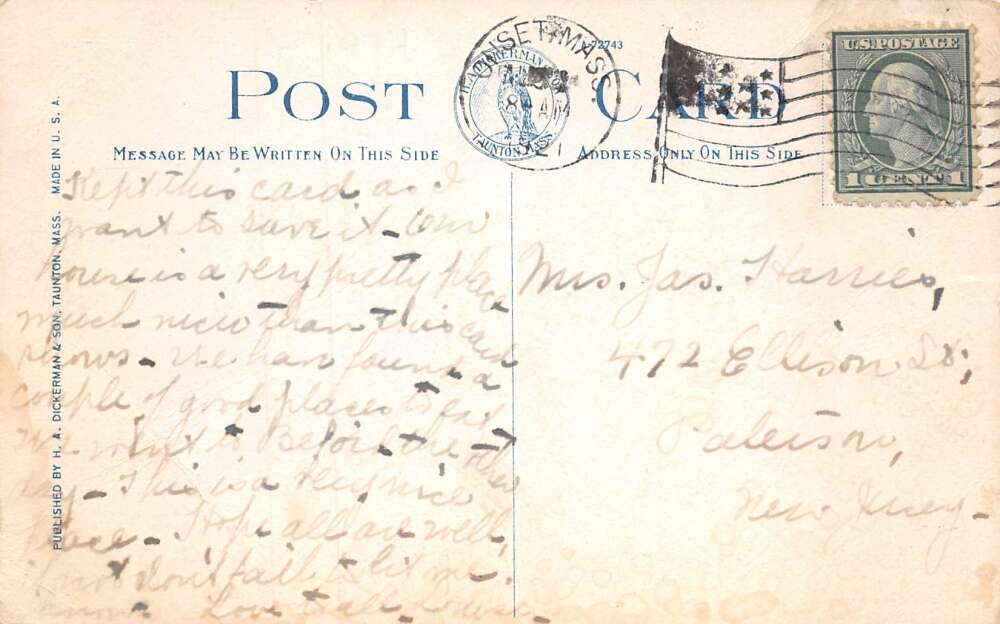 POST CARD
72743
ONSET, MASS
8 A
H. A. DICKERMAN & SON
TAUNTON MASS
U.S. POSTAGE
1 CENT 1
MESSAGE MAY BE WRITTEN ON THIS SIDE
ADDRESS ONLY ON THIS SIDE
PUBLISHED BY H. A. DICKERMAN & SON, TAUNTON, MASS. MADE IN U. S. A.
Kept this card as I
want to save it - Our
house is a very pretty place
much nicer than this card
shows - We have found a
couple of good places to eat
We went to the other
day - This is a very nice
place - Hope all are well,
if not don't fail to let me
know Love to all
Mrs. Jas. Harries,
472 Ellison St,
Paterson,
New Jersey -